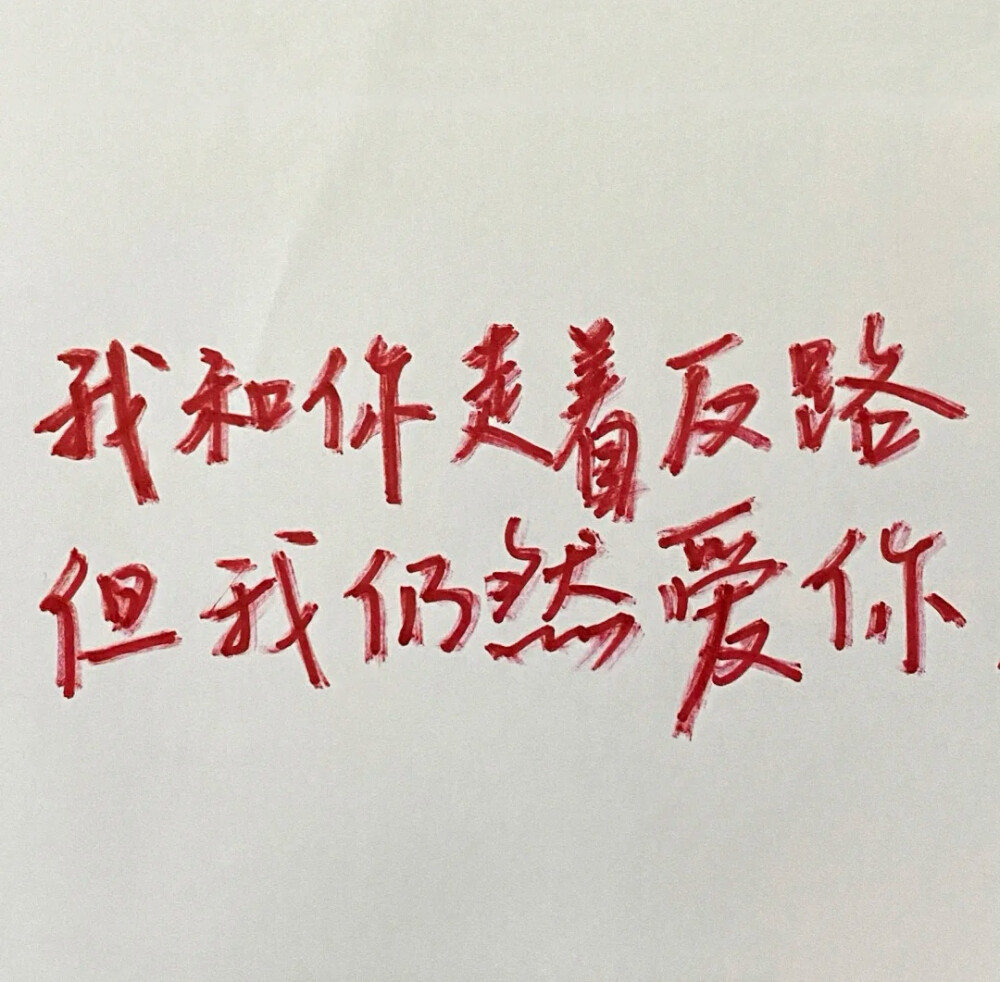 我和你走着反路
但我仍然爱你